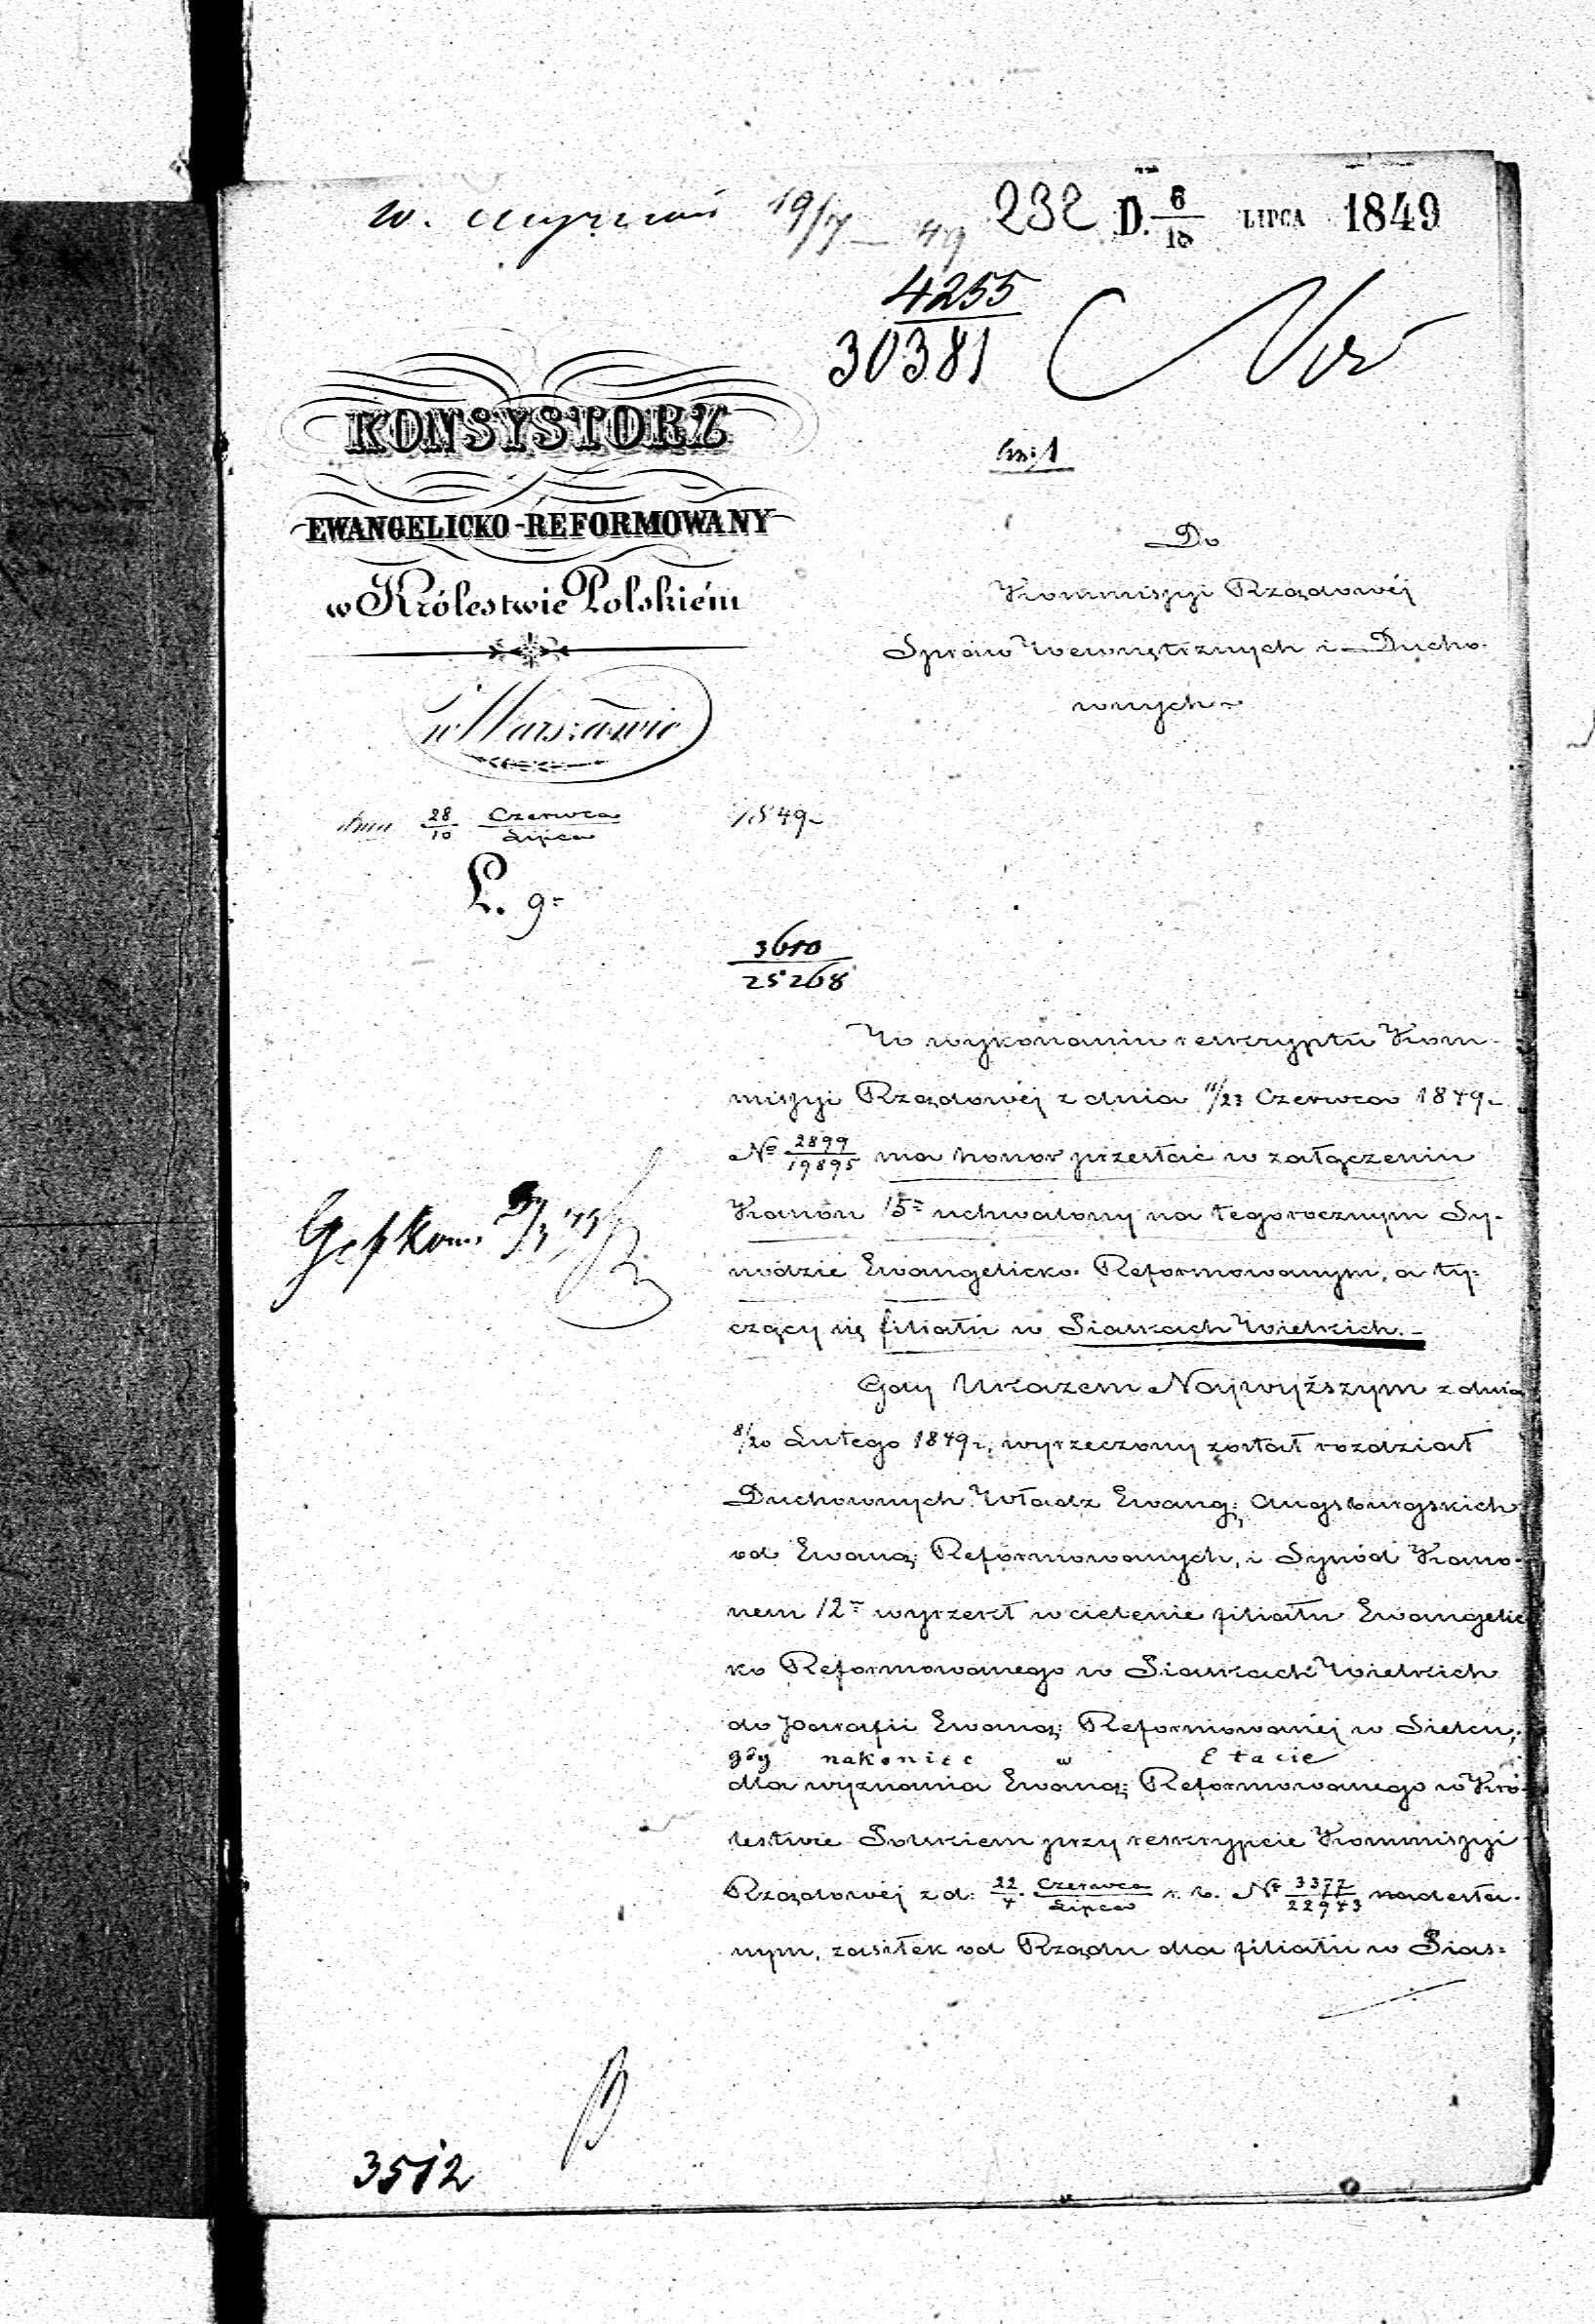 w. 19/7 — 49 232 D. 6/18 LIPCA 1849
4255
30381
KONSYSTORZ
EWANGELICKO-REFORMOWANY
w Królestwie Polskiém
w Warszawie
dnia 28/10 Czerwca/Lipca 1849.
L. 9.
Do
Kommissyi Rządowéj
Spraw Wewnętrznych i Ducho-
wnych.
3610
25268
W wykonaniu reskryptu Kom-
missyi Rządowéj z dnia 11/23 Czerwca 1849.
№ 2899/19895 ma honor przesłać w załączeniu
Kanon 15= uchwalony na tegorocznym Sy-
nodzie Ewangelicko-Reformowanym, a ty-
czący się filiału w Siawkach Wielkich.-
Gdy Ukazem Najwyższym z dnia
8/20 Lutego 1849 r, wyrzeczony został rozdział
Duchownych Władz Ewang: Augsburgskich
od Ewang: Reformowanych, i Synód Kano-
nem 12= wyrzekł wcielenie filiału Ewangelic
ko Reformowanego w Siawkach Wielkich
do parafii Ewang: Reformowanéj w Sielcu;
gdy nakoniec w Etacie
dla wyznania Ewang: Reformowanego w Kró-
lestwie Polskiem przy reskrypcie Kommissyi
Rządowéj z d: 22/4 Czerwca/Lipca r. b. № 3377/22943 nadesła-
nym, zasiłek od Rządu dla filiału w Sias=
3512